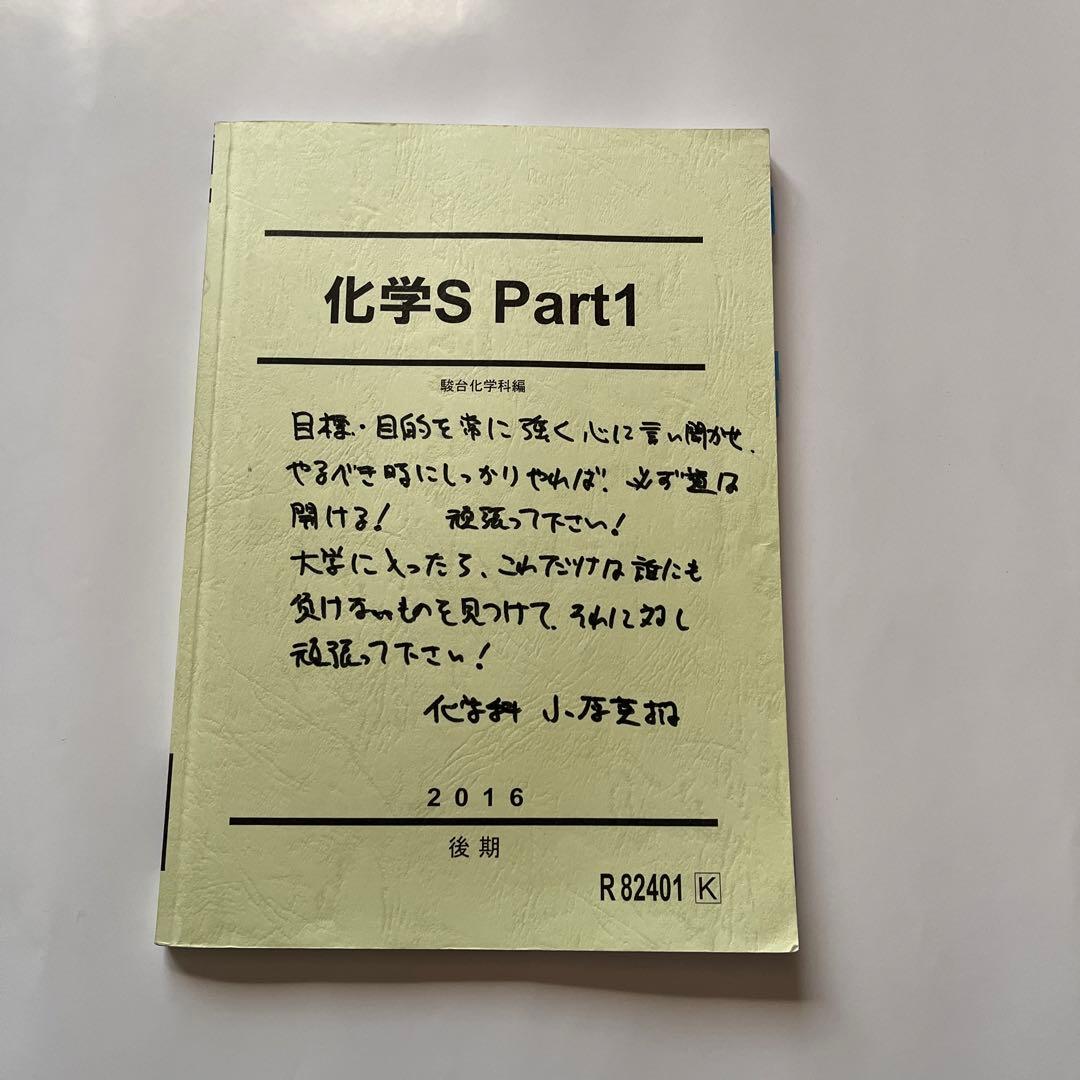 化学S Part1
駿台化学科編
目標・目的を常に強く心に言い聞かせ、
やるべき時にしっかりやれば、必ず道は
開ける! 頑張って下さい!
大学に入ったら、これだけは誰にも
負けないものを見つけて、それに対し
頑張って下さい!
化学科 小原
2016
後期
R82401 K